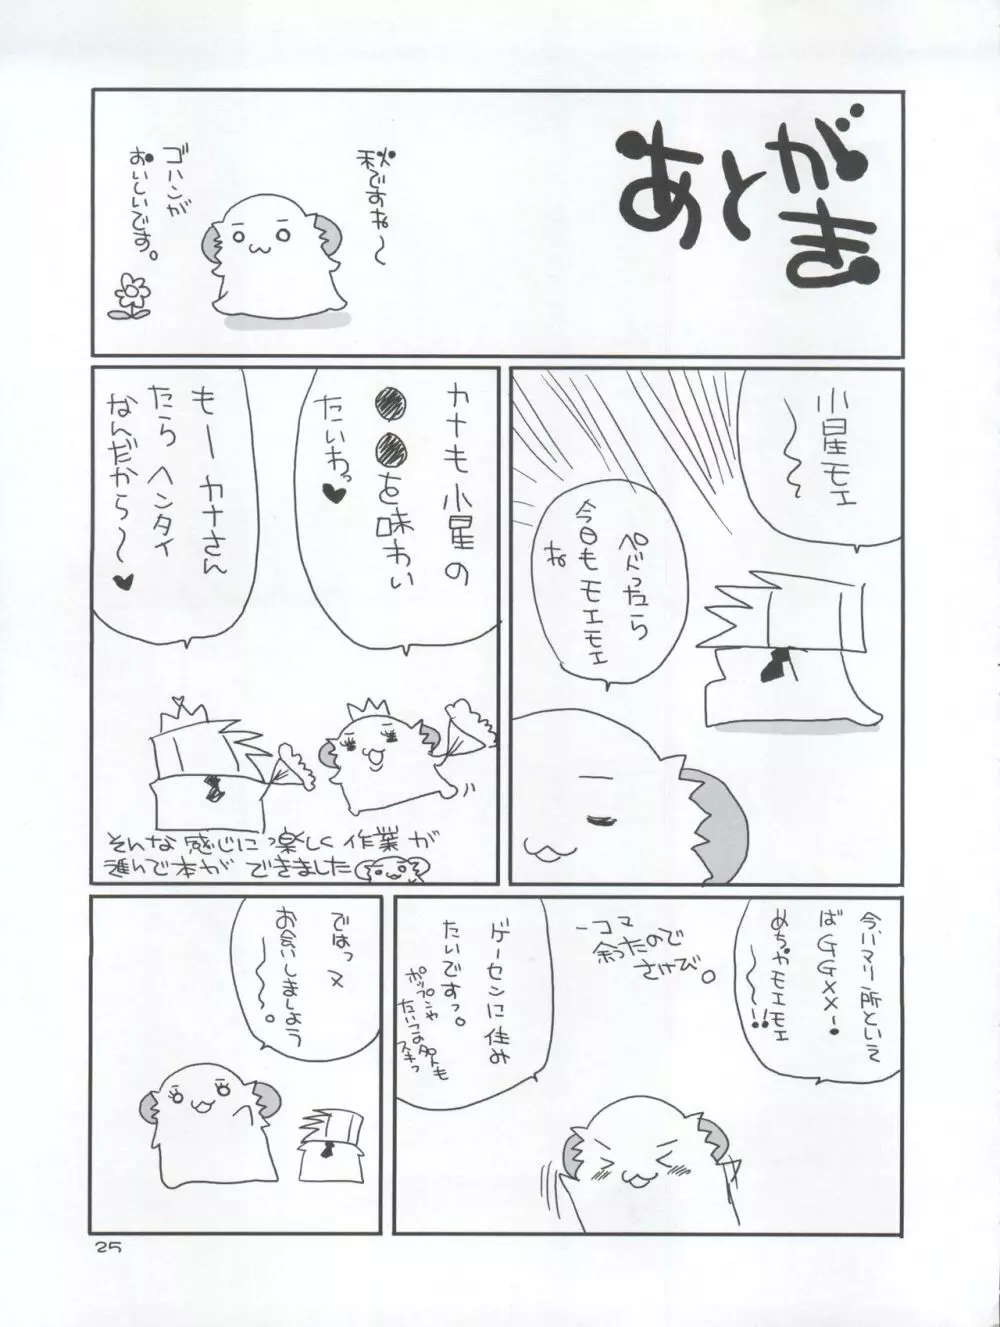 あとがき
秋ですね～
ゴハンが
おいしいです。
小星モエ
ペドったら
今日もモエモエ
ね
カナも小星の
●●を味わい
たいわっ♥
もーカナさん
たらヘンタイ
なんだから～♥
そんな感じにっ楽しく作業が
進んで本ができました
今ハマリ所といえ
ばGGXX～
めちゃモエモエ
～～!!
一コマ
余ったので
さけび。
ゲーセンに住み
たいですっ。
ポップンや
たいつよ
スキっ
ではっヌ
お会いしましょう
～～。
25